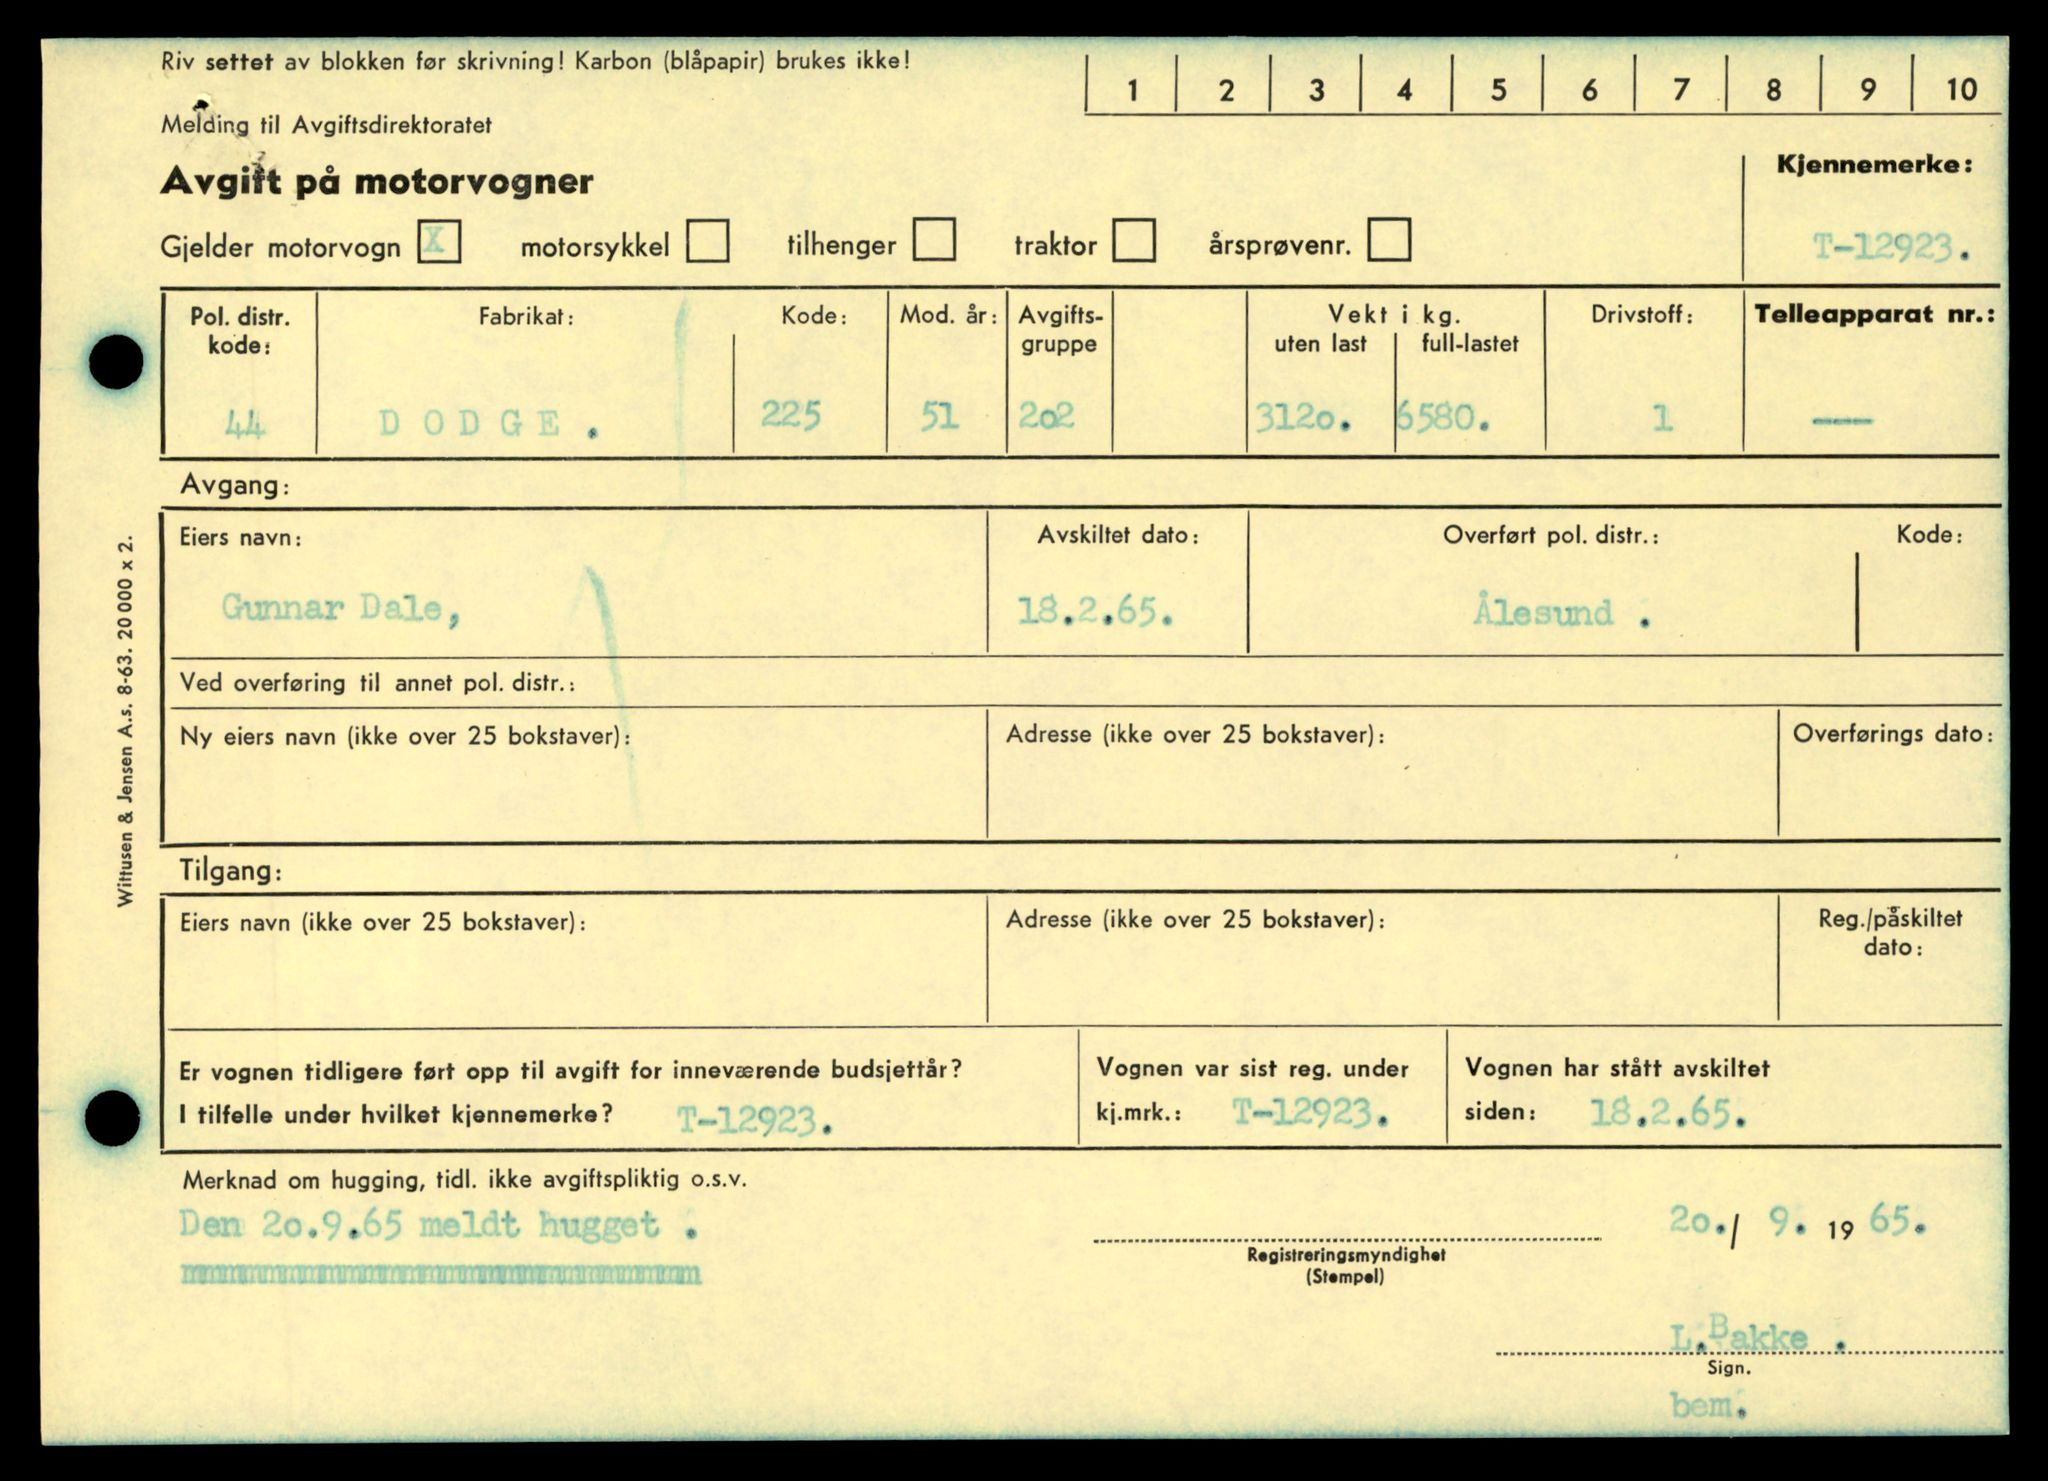 Riv settet av blokken før skrivning! Karbon (blåpapir) brukes ikke!
1 2 3 4 5 6 7 8 9 10
Melding til Avgiftsdirektoratet
Avgift på motorvogner
Kjennemerke:
Gjelder motorvogn X motorsykkel tilhenger traktor årsprøvenr.
T-12923.
Pol. distr. kode: Fabrikat: Kode: Mod. år: Avgifts-gruppe Vekt i kg. uten last full-lastet Drivstoff: Telleapparat nr.:
44 DODGE. 225 51 202 3120. 6580. 1 ---
Avgang:
Eiers navn: Avskiltet dato: Overført pol. distr.: Kode:
Gunnar Dale, 18.2.65. Ålesund .
Ved overføring til annet pol. distr.:
Ny eiers navn (ikke over 25 bokstaver): Adresse (ikke over 25 bokstaver): Overførings dato:
Tilgang:
Eiers navn (ikke over 25 bokstaver): Adresse (ikke over 25 bokstaver): Reg./påskiltet dato:
Er vognen tidligere ført opp til avgift for inneværende budsjettår?
I tilfelle under hvilket kjennemerke? T-12923.
Vognen var sist reg. under
kj.mrk.: T-12923.
Vognen har stått avskiltet
siden: 18.2.65.
Merknad om hugging, tidl. ikke avgiftspliktig o.s.v.
Den 20.9.65 meldt hugget .
20./ 9. 19 65.
Registreringsmyndighet
(Stempel)
L.Bakke .
Sign.
bem.
Wittusen & Jensen A.s. 8-63. 20 000 x 2.